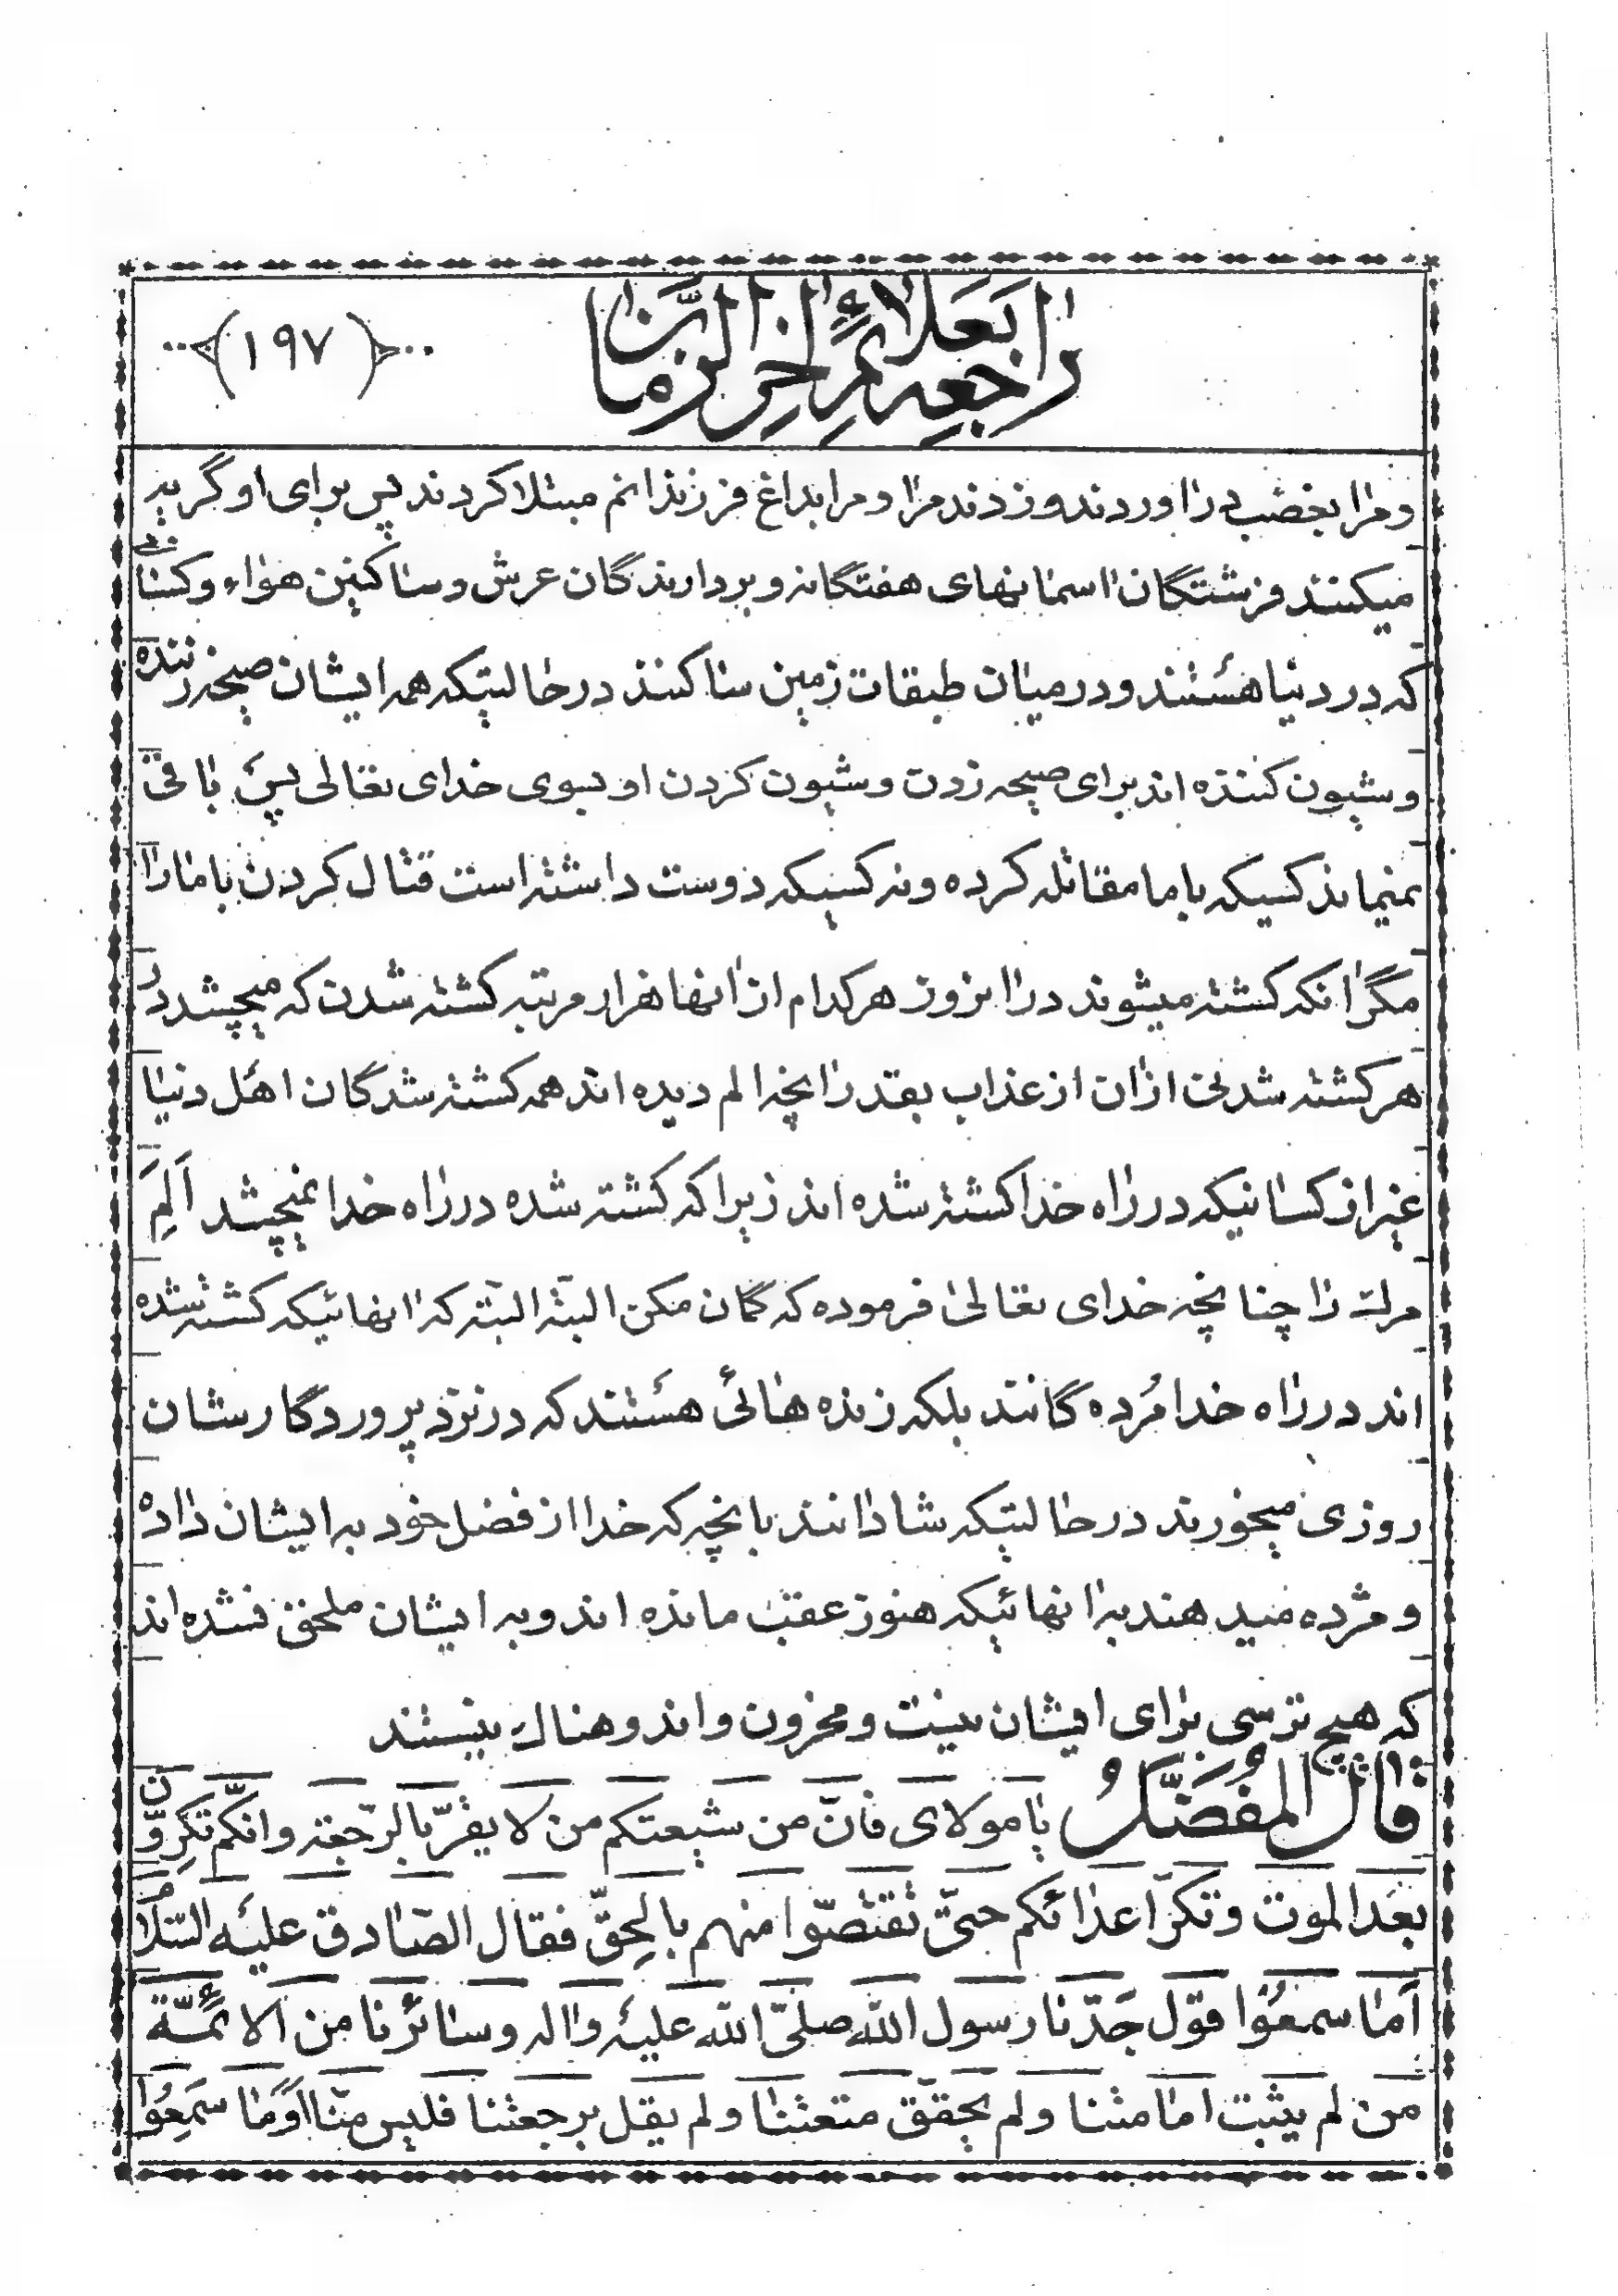 راجعه بعلائم آخر الزمان
(۱۹۷)
و مرا بغضب در آوردند و زدند مرا و مرا بداغ فرزندانم مبتلا کردند پس برای او گریه
میکنند فرشتگان آسمانهای هفتگانه و بردارندگان عرش و ساکنین هواء و کسانی
که در دنیا هستند و در میان طبقات زمین ساکنند در حالتیکه همه ایشان صیحه زننده
و شیون کننده اند برای صیحه زدن و شیون کردن او بسوی خدای تعالی پس باقی
نمیماند کسیکه با ما مقاتله کرده و نه کسیکه دوست داشته است قتال کردن با ما را
مگر آنکه کشته میشوند در آنروز هر کدام از آنها هزار مرتبه کشته شدن که میچشد در
هر کشته شدنی از آن از عذاب بقدر آنچه الم دیده اند همه کشته شدگان اهل دنیا
غیر از کسانیکه در راه خدا کشته شده اند زیرا که کشته شده در راه خدا نمیچشد اَلَمِ
مرك را چنانچه خدای تعالی فرموده که گمان مکن البته البته که آنهائیکه کشته شده
اند در راه خدا مُرده گانند بلکه زنده هائی هستند که در نزد پروردگارشان
روزی میخورند در حالتیکه شادانند بآنچه که خدا از فضل خود به ایشان داده
و مژده میدهند به آنهائیکه هنوز عقب مانده اند و به ایشان ملحق نشده اند
که هیچ ترسی برای ایشان نیست و محزون و اندوهناك نیستند
قال المُفَضَّلُ یا مولای فانّ من شیعتکم من لا یقرّ بالرّجعة و انّکم تکرّون
بعد الموت و تکرّ اعدائکم حتیّ تقتصّوا منهم بالحقّ فقال الصّادق علیه السّلام
اَما سمعُوا قول جَدّنا رسول الله صلیّ الله علیه و اله و سائرنا من الائمّة
من لم یثبت امامتنا و لم یحقّق متعتنا و لم یقل برجعتنا فلیس منّا اَوَما سَمِعُوا